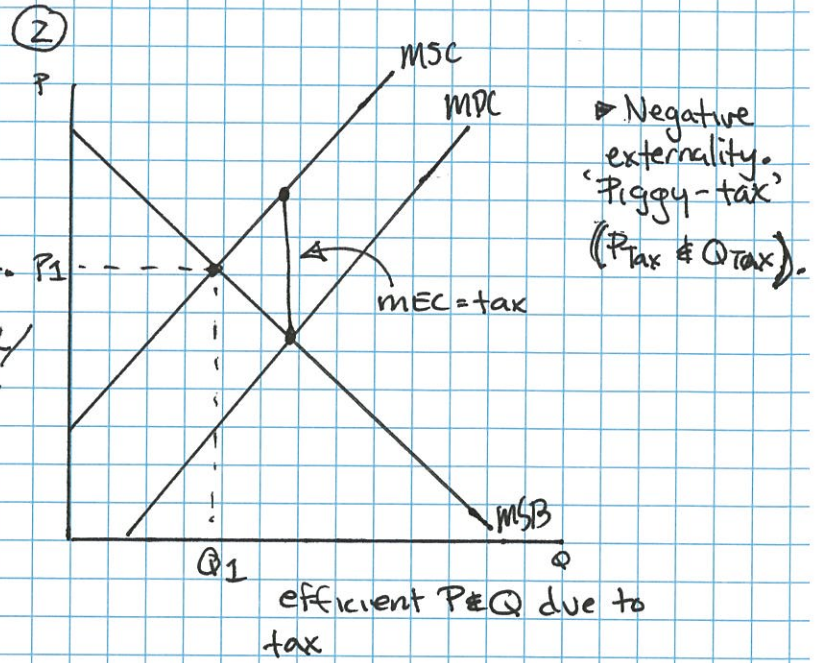 2
P
MSC
MPC
▶ Negative
externality.
'Piggy-tax'
(PTax & QTax).
P1
MEC = tax
MSB
Q1
Q
efficient P&Q due to
tax